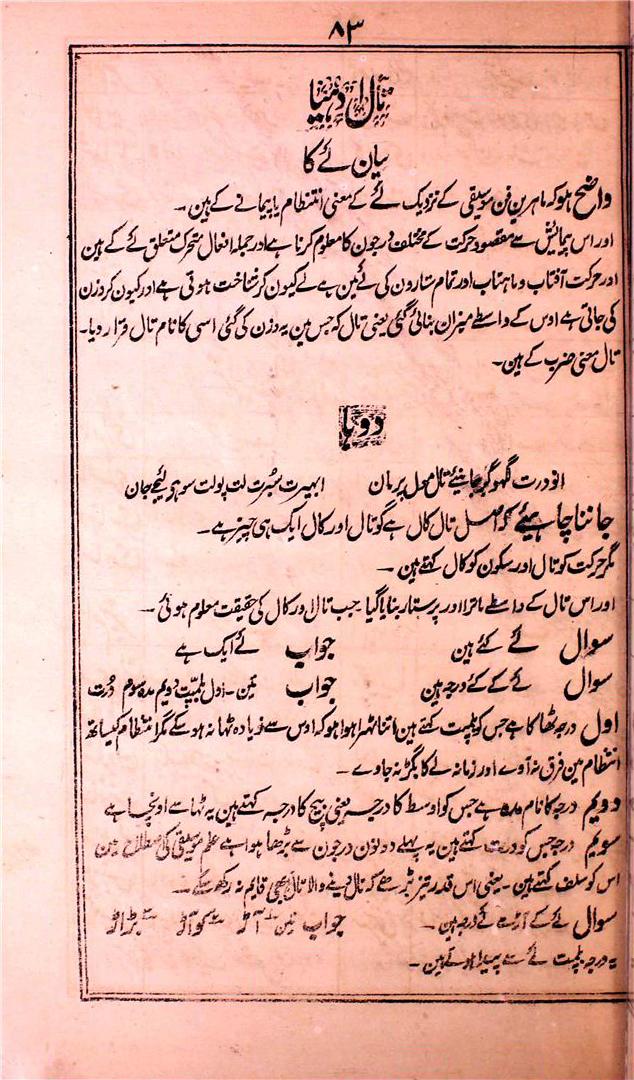 ۸۳
تال ادہنیا
بیان لے کا
واضح ہو کہ ماہرین فن موسیقی کے نزدیک لے کے معنی انتظام یا پیمانے کے ہین۔
اور اس پیمائش سے مقصود حرکت کے مختلف درجون کا معلوم کرنا ہے اور جملہ افعال متحرک متعلق لے کے ہین
اور حرکت آفتاب و ماہتاب اور تمام ستارون کی لے مین ہے لے کیون کر شناخت ہوتی ہے اور کیون کر وزن
کی جاتی ہے اوس کے واسطے میزان بنائی گئی یعنی تال کہ جس مین یہ وزن کی گئی اسی کا نام تال قرار دیا۔
تال معنی ضرب کے ہین۔
دوہا
انودرت لگھو گر جانیئے تال محل پرمان ابھیرت سُبرت لت پولت سو ہو لیجے جان
جاننا چاہیئے کہ اصل تال کال ہے گو تال اور کال ایک ہی چیز ہے۔
مگر حرکت کو تال اور سکون کو کال کہتے ہین۔
اور اس تال کے واسطے ماترا اور پرستار بنایا گیا۔ جب تال اور کال کی حقیقت معلوم ہوئی۔
سوال لے کئے ہین جواب لے ایک ہے
سوال لے کے کئے درجہ ہین جواب تین۔ اول بلمپت دویم مدہ سوم درت
اول درجہ ٹھا کا ہے جس کو بلمپت کہتے ہین اتنا ٹھہرا ہوا ہو کہ اوس سے زیادہ ٹھا نہ ہو سکے مگر انتظام کیساتھ
انتظام مین فرق نہ آوے اور زمانہ لے کا بگڑ نہ جاوے۔
دویم درجہ کا نام مدہ ہے جس کو اوسط کا درجہ یعنی بیچ کا درجہ کہتے ہین یہ ٹھا سے اونچا ہے
سویم درجہ جس کو درت کہتے ہین یہ پہلے دونون درجون سے بڑھا ہوا ہے علم موسیقی کی اصطلاح مین
اس کو سلف کہتے ہین۔ یعنی اس قدر تیز بڑھے کہ تال دینے والا تال بھی قایم نہ رکھ سکے۔
سوال لے کے آڑے کے درجہ ہین۔ جواب تین آڑ کوآڑ بڑآڑ
یہ درجہ بلمپت لے سے پیدا ہوتے ہین۔